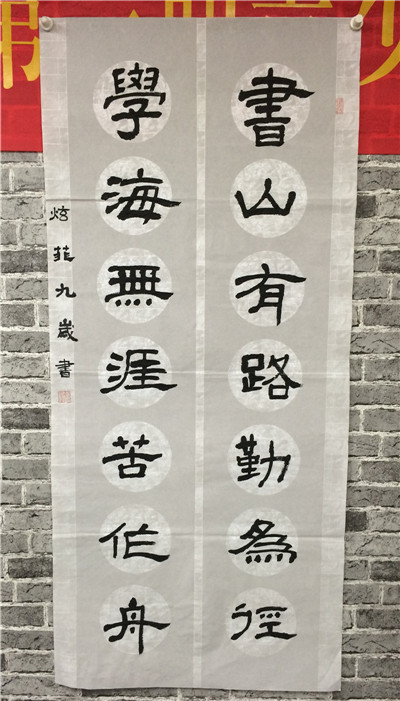 書山有路勤為徑
學海無涯苦作舟
炫菲九歲書